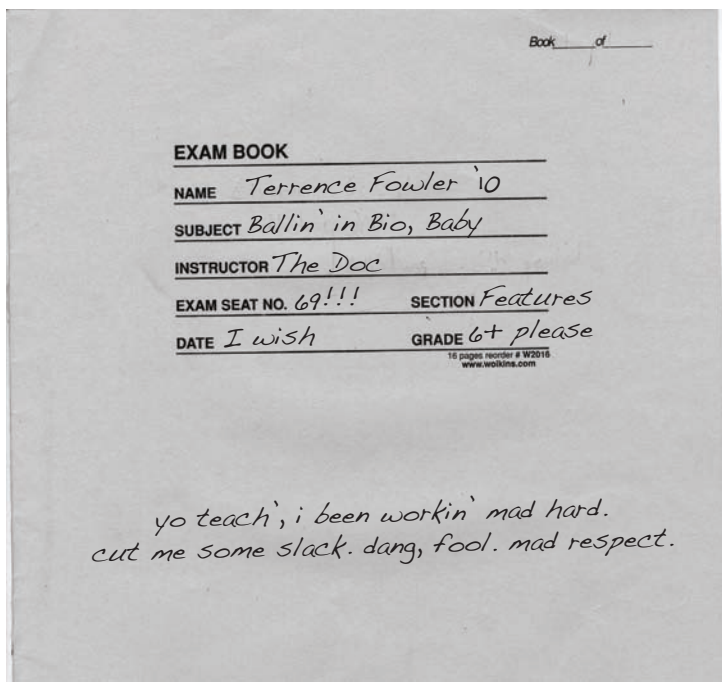 Book_____of_____
EXAM BOOK
NAME Terrence Fowler '10
SUBJECT Ballin' in Bio, Baby
INSTRUCTOR The Doc
EXAM SEAT NO. 69!!! SECTION Features
DATE I wish GRADE 6+ please
16 pages reorder # W2016
www.wolkins.com
yo teach', i been workin' mad hard.
cut me some slack. dang, fool. mad respect.